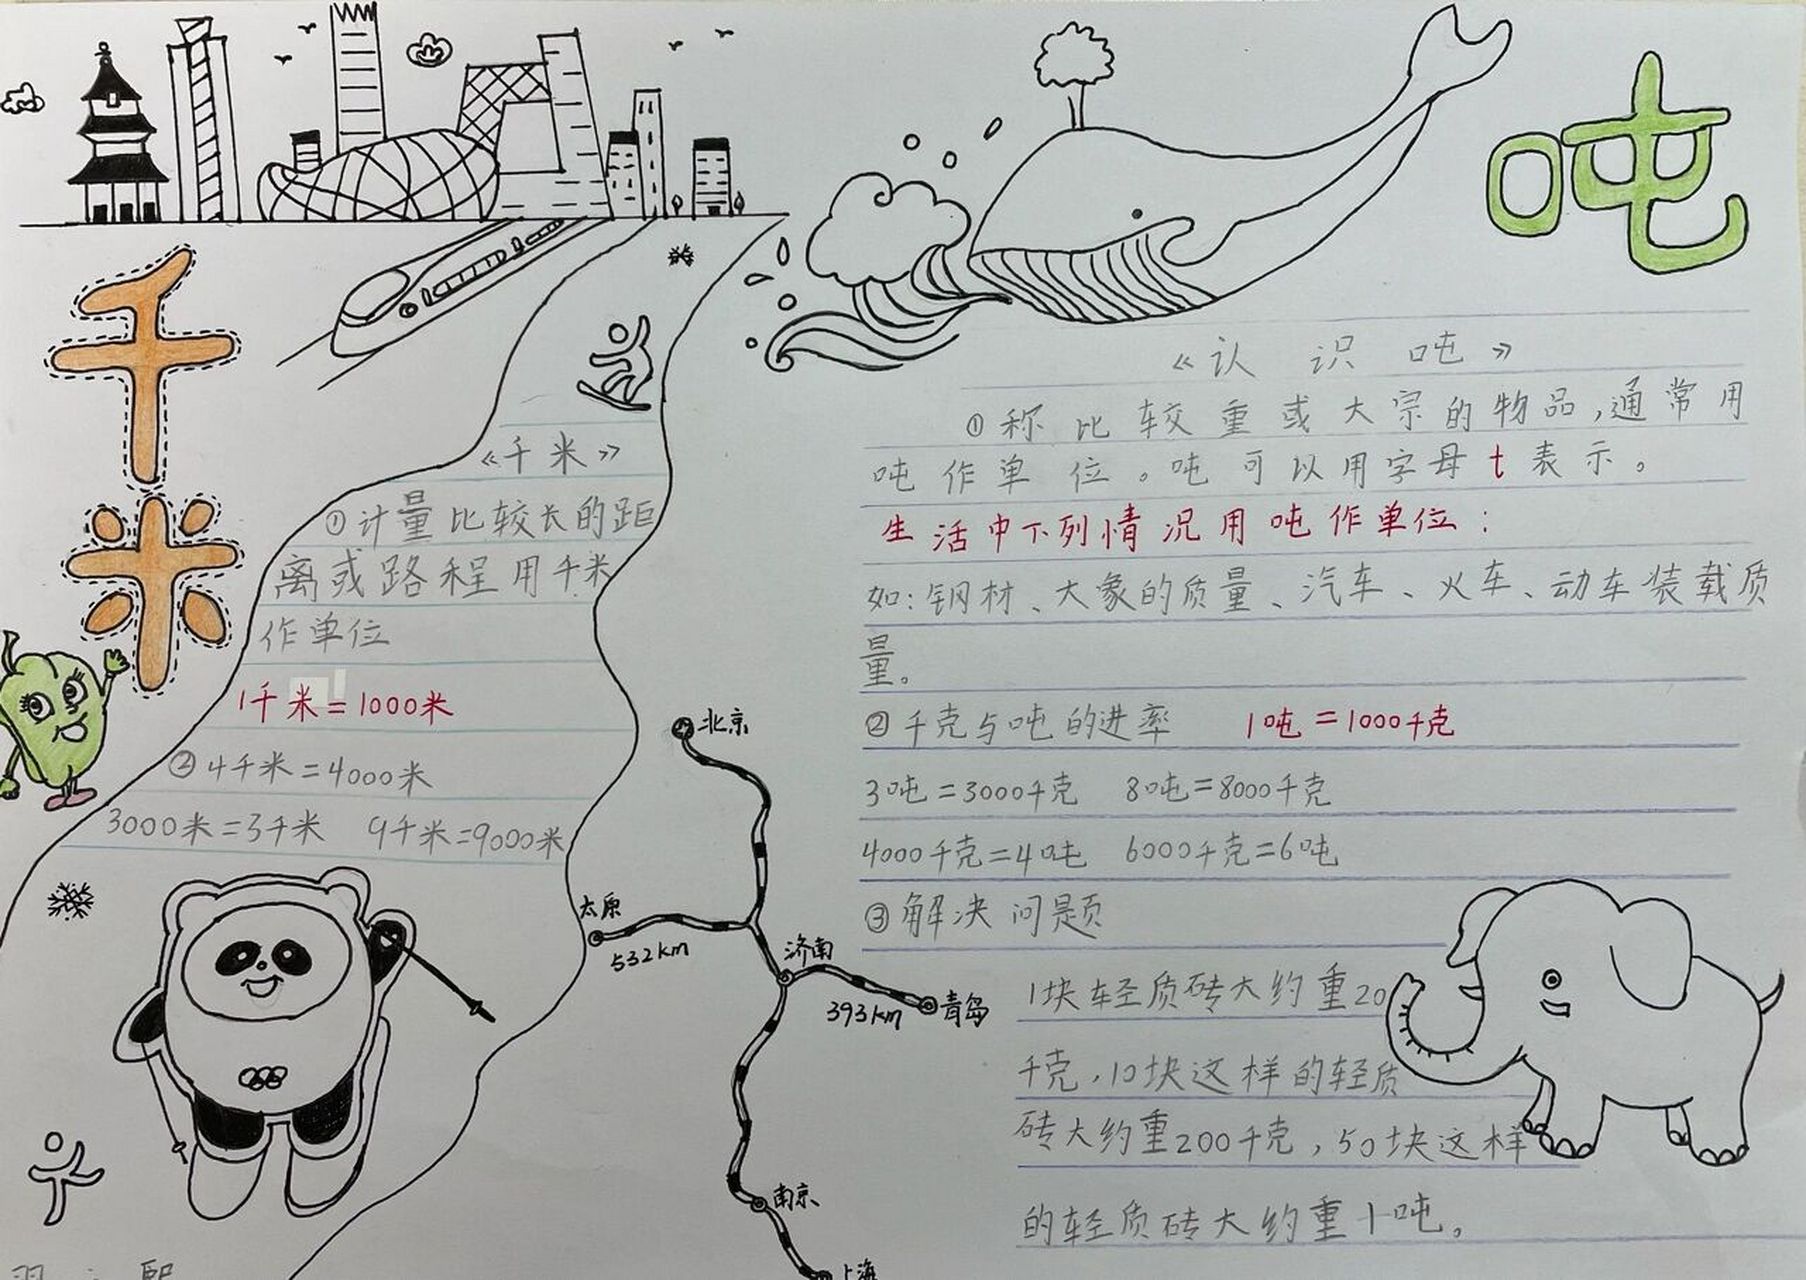 千
米
《千米》
①计量比较长的距
离或路程用千米
作单位
1千米=1000米
②4千米=4000米
3000米=3千米 9千米=9000米
北京
太原
532km
济南
393km
青岛
南京
上海
吨
《认识吨》
①称比较重或大宗的物品,通常用
吨作单位。吨可以用字母t表示。
生活中下列情况用吨作单位:
如:钢材、大象的质量、汽车、火车、动车装载质
量。
②千克与吨的进率 1吨=1000千克
3吨=3000千克 8吨=8000千克
4000千克=4吨 6000千克=6吨
③解决问题
1块轻质砖大约重20
千克,10块这样的轻质
砖大约重200千克,50块这样
的轻质砖大约重1吨。